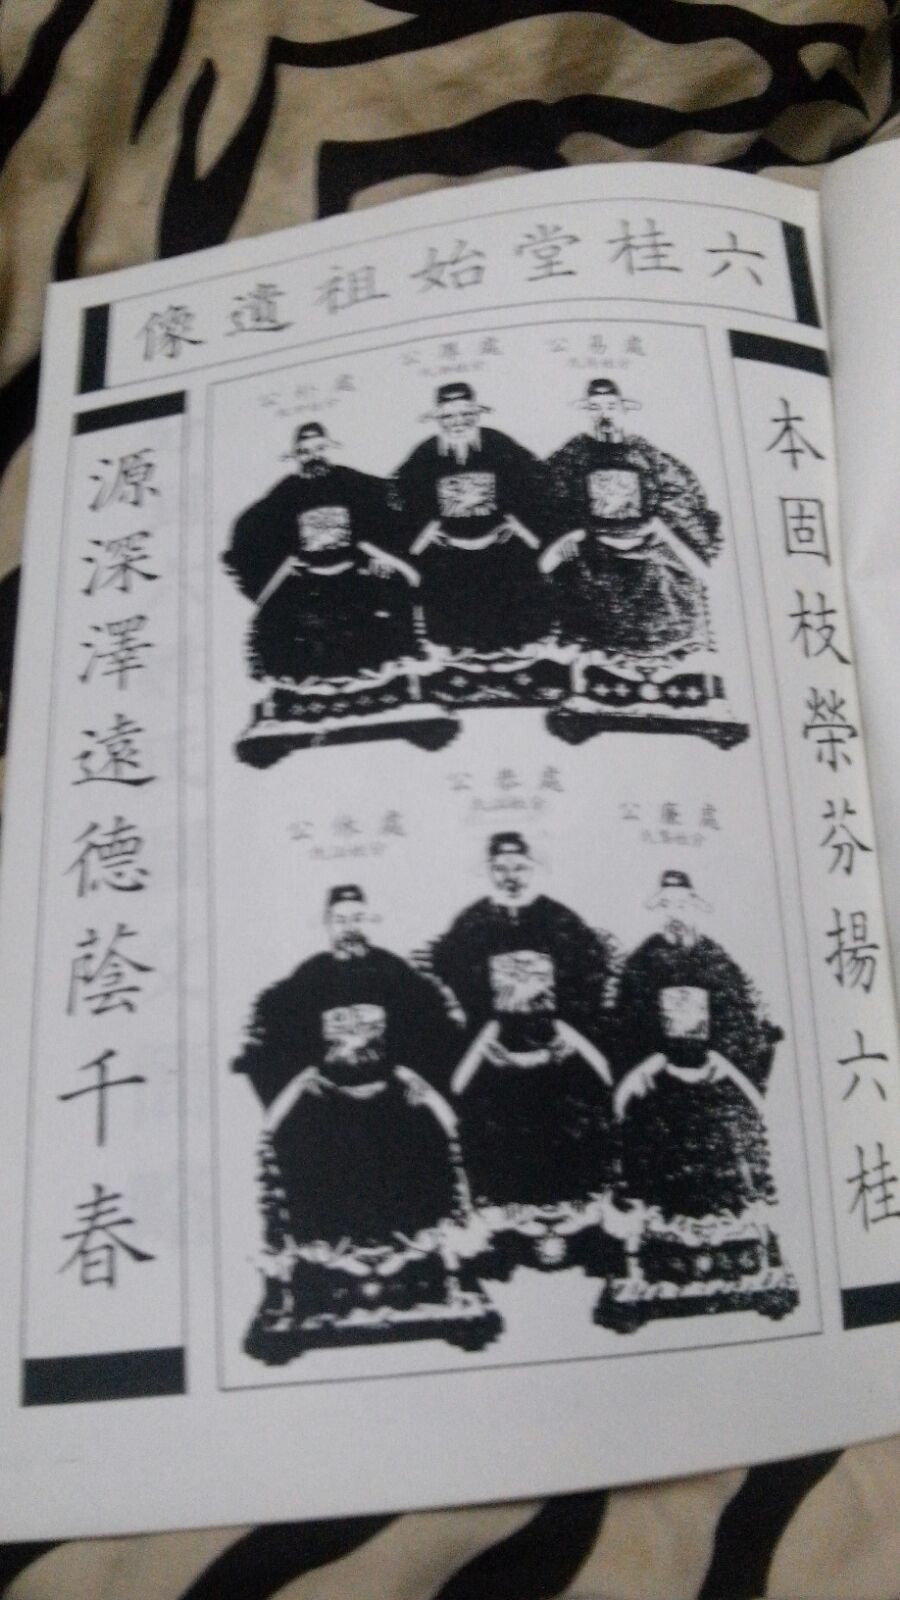 六桂堂始祖遺像
本固枝榮芬揚六桂
處易公
處厚公
處朴公
處廉公
處恭公
處休公
源深澤遠德蔭千春